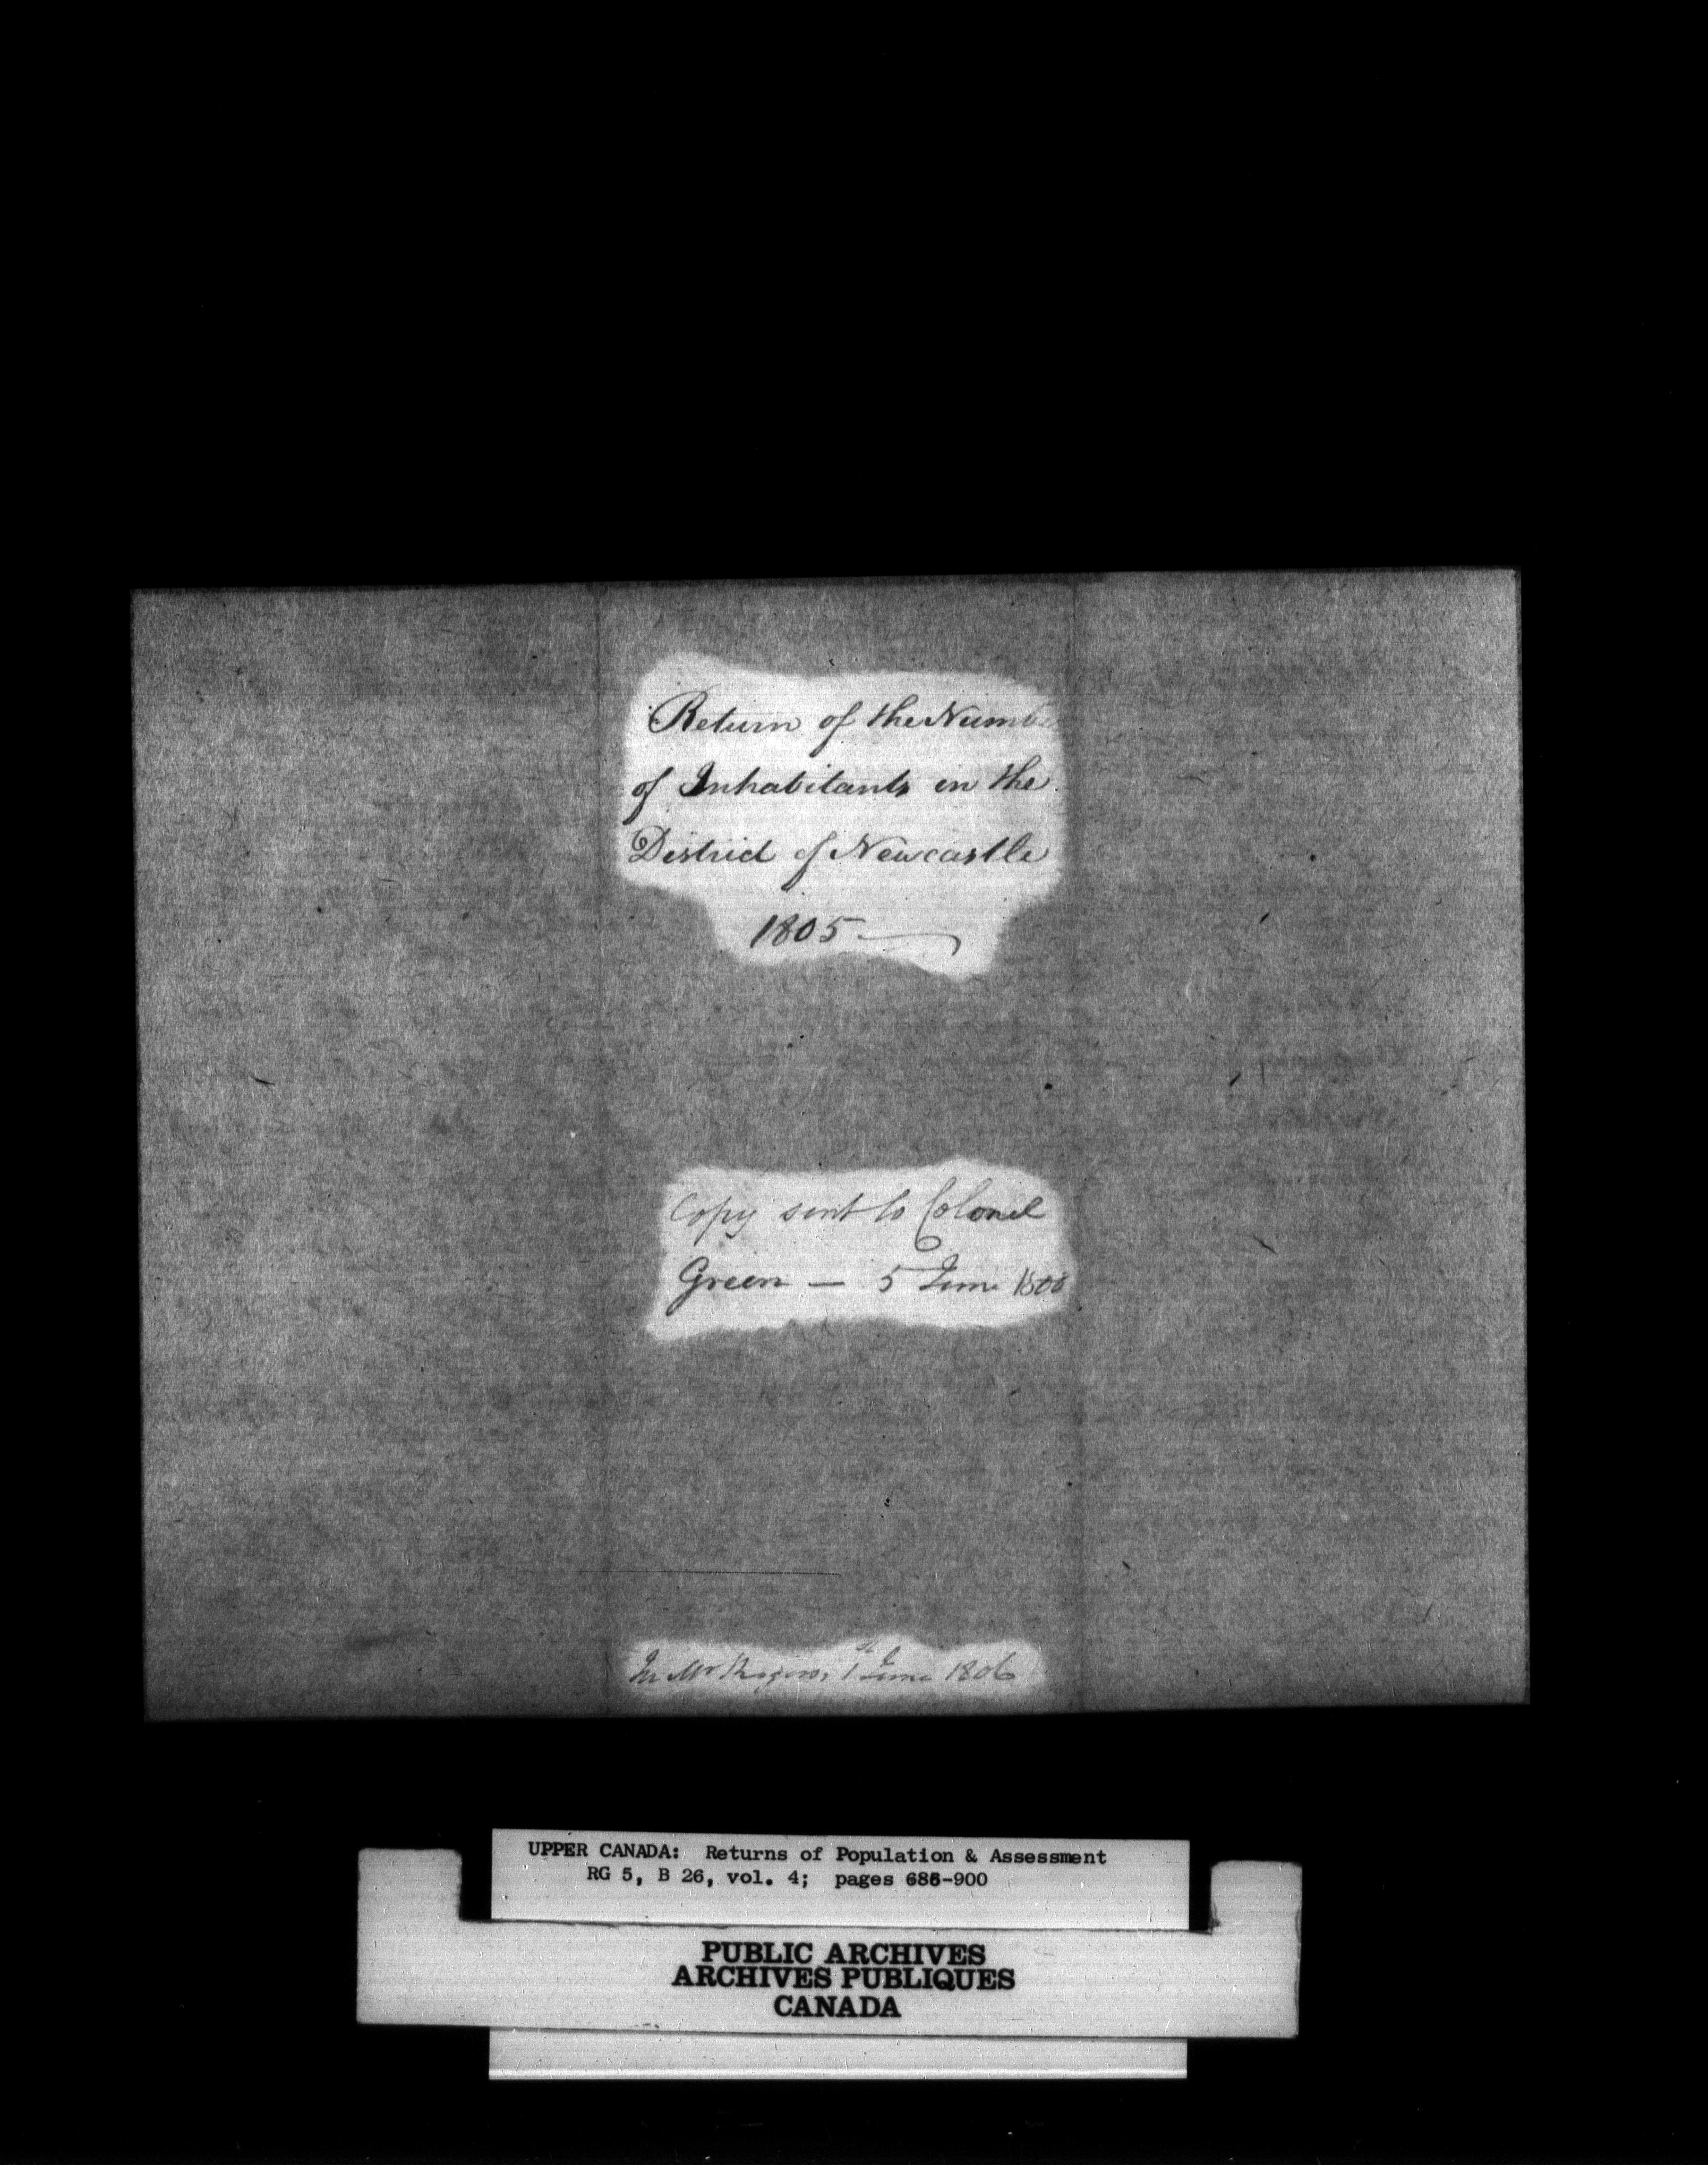 Return of the Numbe
of Inhabitants in the
District of Newcastle
1805
Copy sent to Colonel
Green — 5 June 1806
In Mr Rogers, 1st June 1806
UPPER CANADA: Returns of Population & Assessment
RG 5, B 26, vol. 4; pages 686-900
PUBLIC ARCHIVES
ARCHIVES PUBLIQUES
CANADA